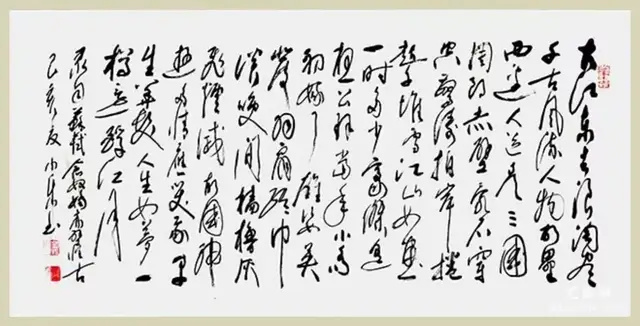 大江东去浪淘尽
千古风流人物故垒
西边人道是三国
周郎赤壁乱石穿
空惊涛拍岸卷
堆雪江山如画
一时多少豪杰
想公瑾当年小乔
初嫁了雄姿英
发羽扇纶巾
谈笑间樯橹灰
飞烟灭故国神
游多情应笑我早
生华发人生如梦一
樽还酹江月
录苏轼念奴娇赤壁怀古
己亥夏小东书